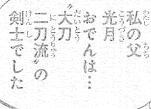 私の父
光月
おでんは…
〝大刀
二刀流〟の
剣士でした